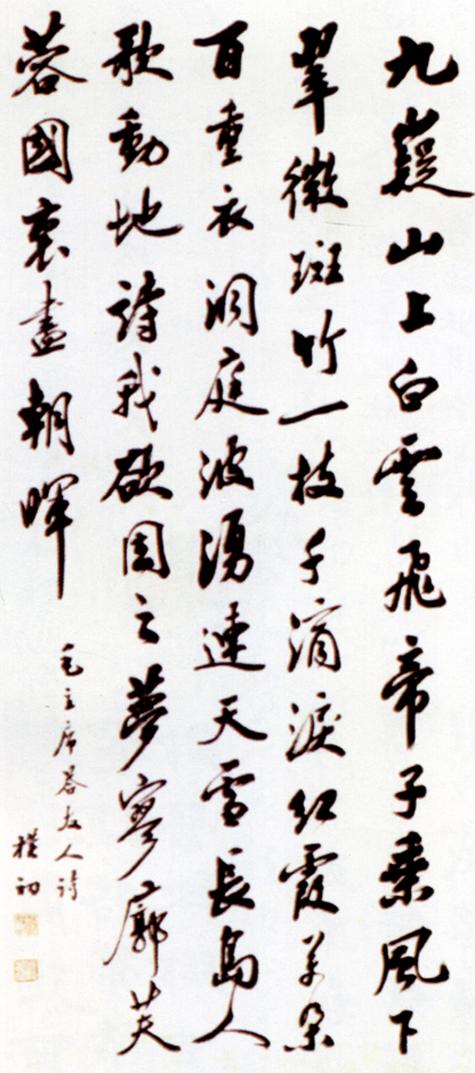 九嶷山上白雲飛帝子乗風下
翠微斑竹一枝千滴淚紅霞萬朶
百重衣洞庭波湧連天雪長島人
歌動地詩我欲因之夢寥廓芙
蓉國裏盡朝暉
毛主席答友人詩
樸初